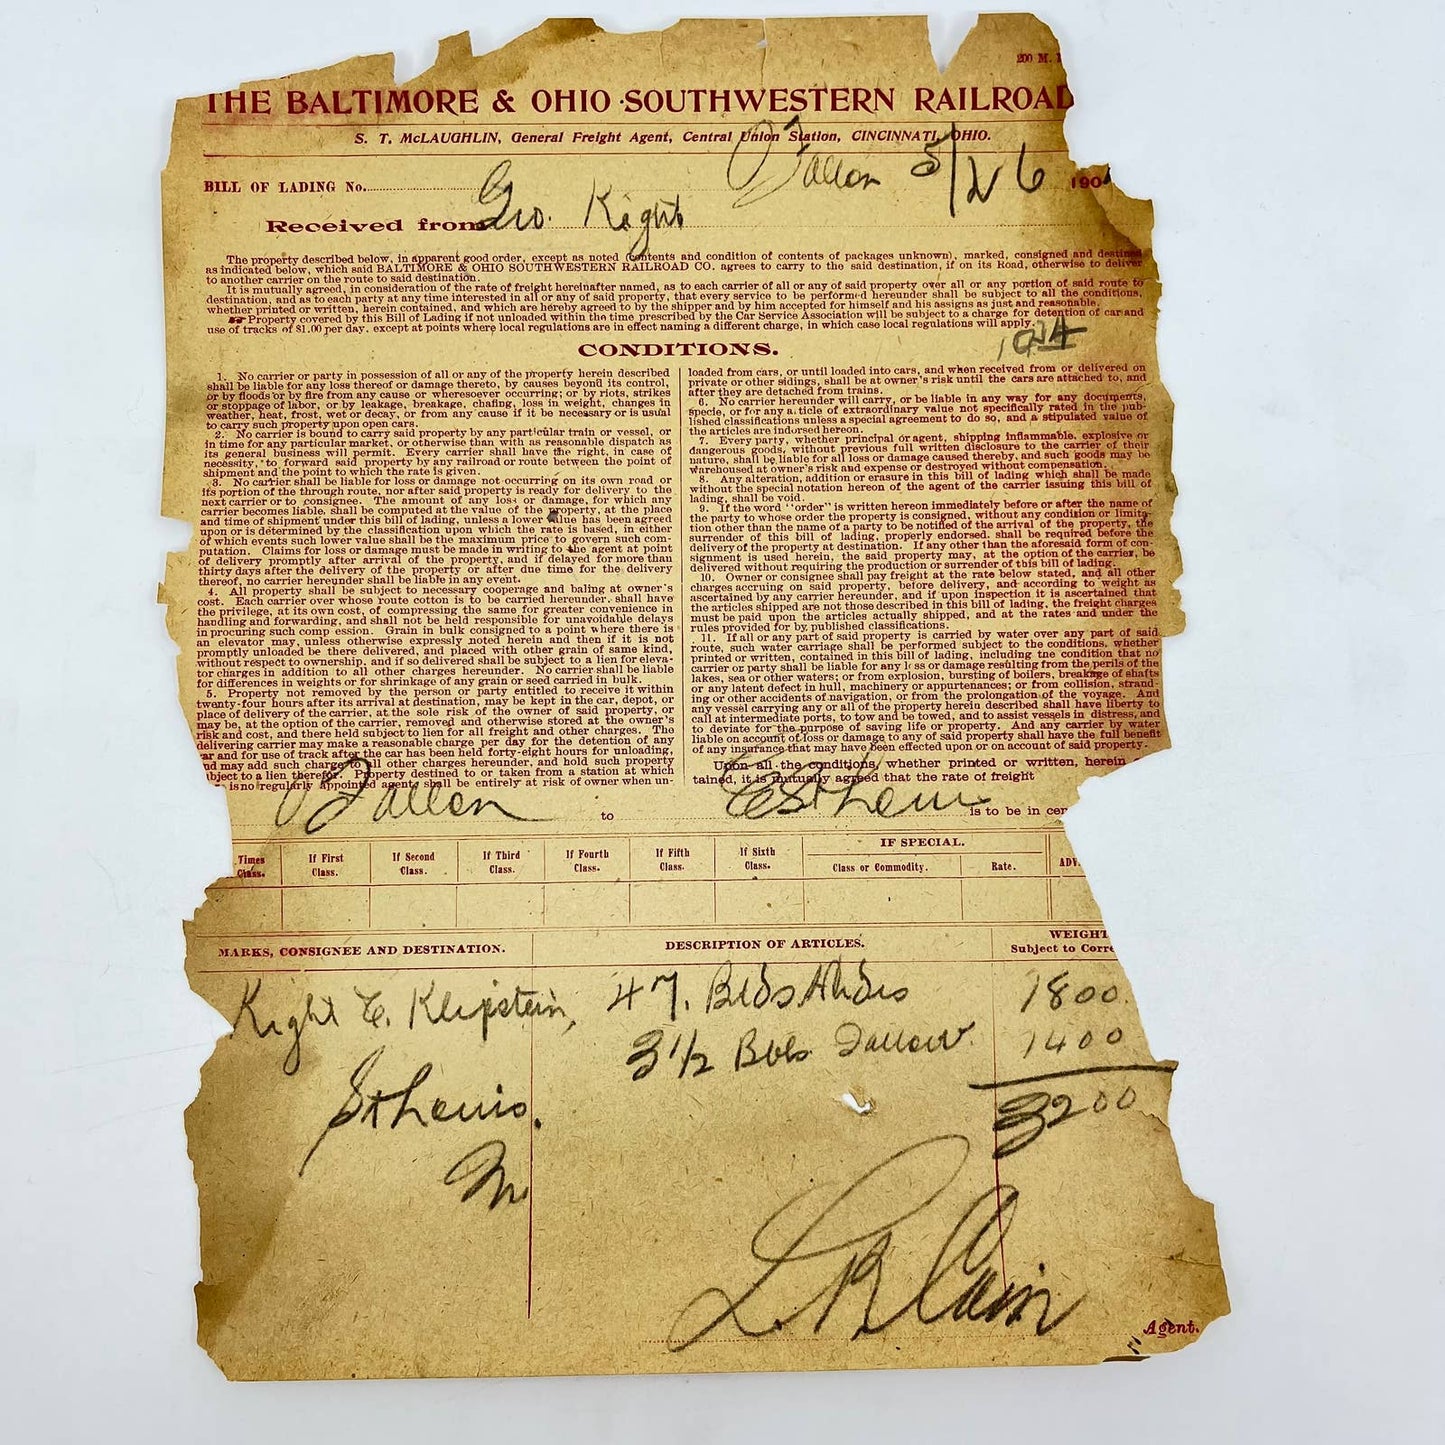 200 M.
THE BALTIMORE & OHIO SOUTHWESTERN RAILROAD
S. T. McLAUGHLIN, General Freight Agent, Central Union Station, CINCINNATI, OHIO.
O'Fallon 5/26 190
BILL OF LADING No.
Received from Geo. Kight
The property described below, in apparent good order, except as noted (contents and condition of contents of packages unknown), marked, consigned and destined
as indicated below, which said BALTIMORE & OHIO SOUTHWESTERN RAILROAD CO. agrees to carry to the said destination, if on its Road, otherwise to deliver
to another carrier on the route to said destination.
It is mutually agreed, in consideration of the rate of freight hereinafter named, as to each carrier of all or any of said property over all or any portion of said route to
destination, and as to each party at any time interested in all or any of said property, that every service to be performed hereunder shall be subject to all the conditions,
whether printed or written, herein contained, and which are hereby agreed to by the shipper and by him accepted for himself and his assigns as just and reasonable.
☛Property covered by this Bill of Lading if not unloaded within the time prescribed by the Car Service Association will be subject to a charge for detention of car and
use of tracks of $1.00 per day, except at points where local regulations are in effect naming a different charge, in which case local regulations will apply.
CONDITIONS.
1. No carrier or party in possession of all or any of the property herein described
shall be liable for any loss thereof or damage thereto, by causes beyond its control,
or by floods or by fire from any cause or wheresoever occurring; or by riots, strikes
or stoppage of labor, or by leakage, breakage, chafing, loss in weight, changes in
weather, heat, frost, wet or decay, or from any cause if it be necessary or is usual
to carry such property upon open cars.
2. No carrier is bound to carry said property by any particular train or vessel, or
in time for any particular market, or otherwise than with as reasonable dispatch as
its general business will permit. Every carrier shall have the right, in case of
necessity, to forward said property by any railroad or route between the point of
shipment and the point to which the rate is given.
3. No carrier shall be liable for loss or damage not occurring on its own road or
its portion of the through route, nor after said property is ready for delivery to the
next carrier or to consignee. The amount of any loss or damage, for which any
carrier becomes liable, shall be computed at the value of the property, at the place
and time of shipment under this bill of lading, unless a lower value has been agreed
upon or is determined by the classification upon which the rate is based, in either
of which events such lower value shall be the maximum price to govern such com-
putation. Claims for loss or damage must be made in writing to the agent at point
of delivery promptly after arrival of the property, and if delayed for more than
thirty days after the delivery of the property or after due time for the delivery
thereof, no carrier hereunder shall be liable in any event.
4. All property shall be subject to necessary cooperage and baling at owner's
cost. Each carrier over whose route cotton is to be carried hereunder, shall have
the privilege, at its own cost, of compressing the same for greater convenience in
handling and forwarding, and shall not be held responsible for unavoidable delays
in procuring such compession. Grain in bulk consigned to a point where there is
an elevator may, unless otherwise expressly noted herein and then if it is not
promptly unloaded be there delivered, and placed with other grain of same kind,
without respect to ownership, and if so delivered shall be subject to a lien for eleva-
tor charges in addition to all other charges hereunder. No carrier shall be liable
for differences in weights or for shrinkage of any grain or seed carried in bulk.
5. Property not removed by the person or party entitled to receive it within
twenty-four hours after its arrival at destination, may be kept in the car, depot, or
place of delivery of the carrier, at the sole risk of the owner of said property, or
may be, at the option of the carrier, removed and otherwise stored at the owner's
risk and cost, and there held subject to lien for all freight and other charges. The
delivering carrier may make a reasonable charge per day for the detention of any
car and for use of track after the car has been held forty-eight hours for unloading,
nd may add such charge to all other charges hereunder, and hold such property
bject to a lien therefor. Property destined to or taken from a station at which
is no regularly appointed agent shall be entirely at risk of owner when un-
loaded from cars, or until loaded into cars, and when received from or delivered on
private or other sidings, shall be at owner's risk until the cars are attached to, and
after they are detached from trains.
6. No carrier hereunder will carry, or be liable in any way for any documents,
specie, or for any article of extraordinary value not specifically rated in the pub-
lished classifications unless a special agreement to do so, and a stipulated value of
the articles are indorsed hereon.
7. Every party, whether principal or agent, shipping inflammable, explosive or
dangerous goods, without previous full written disclosure to the carrier of their
nature, shall be liable for all loss or damage caused thereby, and such goods may be
warehoused at owner's risk and expense or destroyed without compensation.
8. Any alteration, addition or erasure in this bill of lading which shall be made
without the special notation hereon of the agent of the carrier issuing this bill of
lading, shall be void.
9. If the word "order" is written hereon immediately before or after the name of
the party to whose order the property is consigned, without any condition or limita-
tion other than the name of a party to be notified of the arrival of the property, the
surrender of this bill of lading, properly endorsed, shall be required before the
delivery of the property at destination. If any other than the aforesaid form of con-
signment is used herein, the said property may, at the option of the carrier, be
delivered without requiring the production or surrender of this bill of lading.
10. Owner or consignee shall pay freight at the rate below stated, and all other
charges accruing on said property, before delivery, and according to weight as
ascertained by any carrier hereunder, and if upon inspection it is ascertained that
the articles shipped are not those described in this bill of lading, the freight charges
must be paid upon the articles actually shipped, and at the rates and under the
rules provided for by published classifications.
11. If all or any part of said property is carried by water over any part of said
route, such water carriage shall be performed subject to the conditions, whether
printed or written, contained in this bill of lading, including the condition that no
carrier or party shall be liable for any loss or damage resulting from the perils of the
lakes, sea or other waters; or from explosion, bursting of boilers, breakage of shafts
or any latent defect in hull, machinery or appurtenances; or from collision, strand-
ing or other accidents of navigation, or from the prolongation of the voyage. And
any vessel carrying any or all of the property herein described shall have liberty to
call at intermediate ports, to tow and be towed, and to assist vessels in distress, and
to deviate for the purpose of saving life or property. And any carrier by water
liable on account of loss or damage to any of said property shall have the full benefit
of any insurance that may have been effected upon or on account of said property.
Upon all the conditions, whether printed or written, herein
tained, it is mutually agreed that the rate of freight
O'Fallon to E St Louis is to be in cen
Times Class. If First Class. If Second Class. If Third Class. If Fourth Class. If Fifth Class. If Sixth Class. IF SPECIAL. Class or Commodity. Rate. ADV
MARKS, CONSIGNEE AND DESTINATION. DESCRIPTION OF ARTICLES. WEIGHT Subject to Corre
Kight & Klipstein, 47. Blds Hides 1800
3 1/2 Bbls Tallow 1400
St Louis. 3200
Mo
L. R. Cain
Agent.